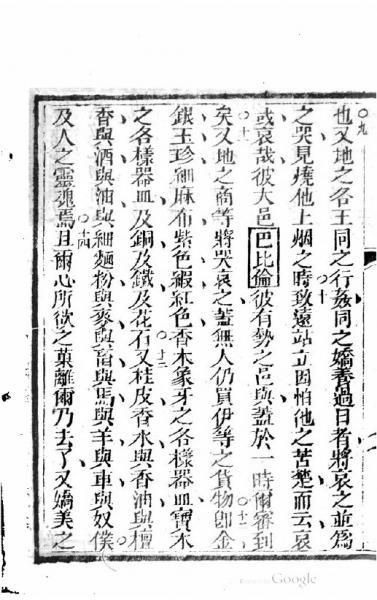 〇九
也又地之各王同之行姦同之嬌養過日者將哀之並為
之哭見燒他上烟之時〇十致遠站立因怕他之苦楚而云哀
或哀哉彼大邑巴比倫彼有勢之邑與蓋於一時爾審到
矣〇十一又地之商等將哭哀之蓋無人仍買伊等之貨物〇十二即金
銀玉珍細麻布紫色緞紅色香木象牙之各樣器皿寶木
之各樣器皿及銅及鐵及花石〇十三又桂皮香水與香油與檀
香與酒與油與細麵粉與麥與畜與馬與羊與車與奴僕
及人之靈魂焉〇十四且爾心所欲之菓離爾乃去了又嬌美之
Google